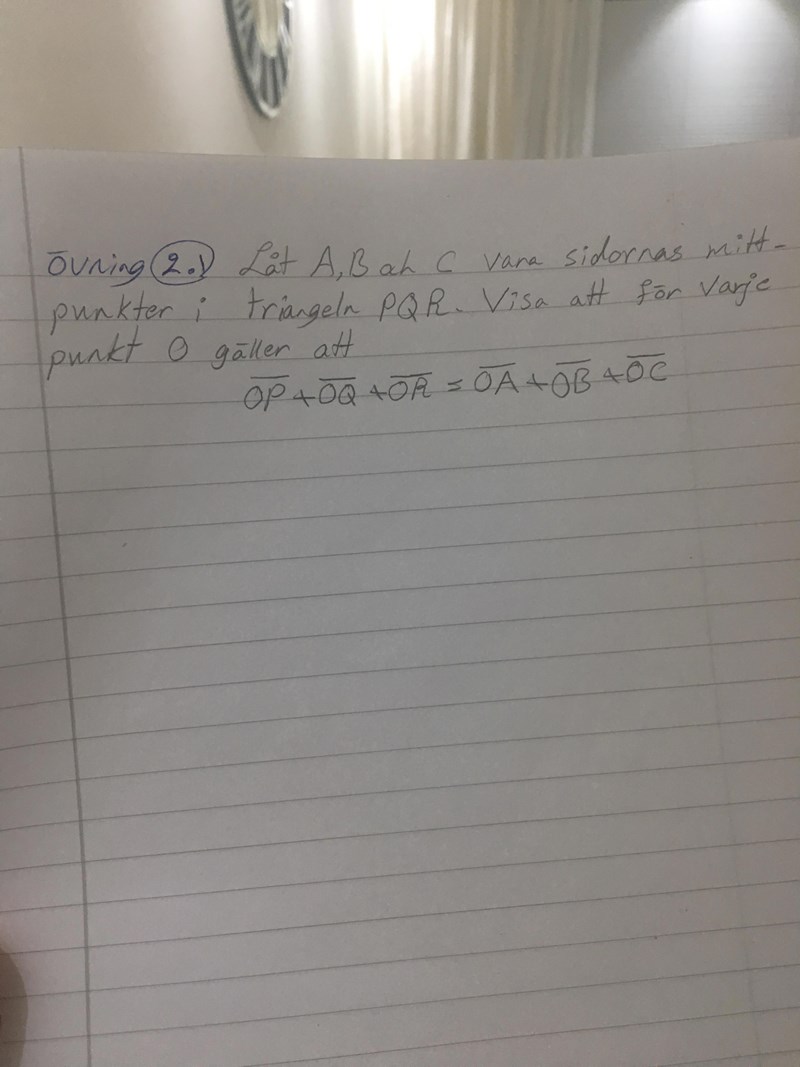 Övning 2.1 Låt A, B och C vara sidornas mitt-
punkter i triangeln PQR. Visa att för varje
punkt O gäller att
O̅P̅ + O̅Q̅ + O̅R̅ = O̅A̅ + O̅B̅ + O̅C̅